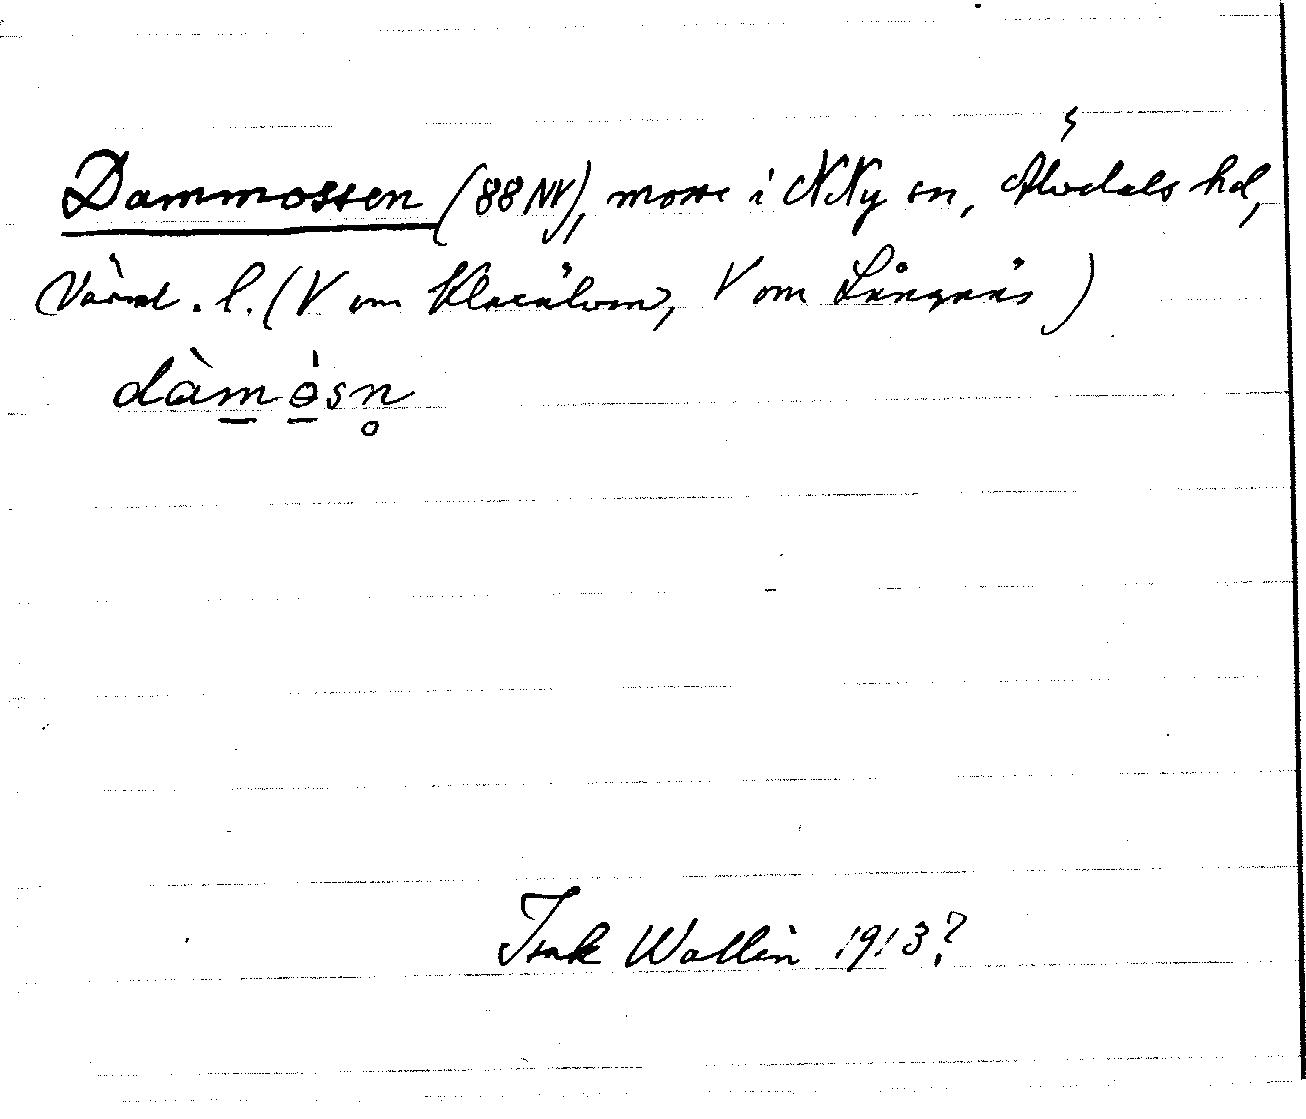 Dammossen (88 NV), mosse i N Ny sn, Älvdals hd,
Värml. l. (V om Klarälven, V om Långnäs)
dàm òsn̥
Isak Wallin 1913?